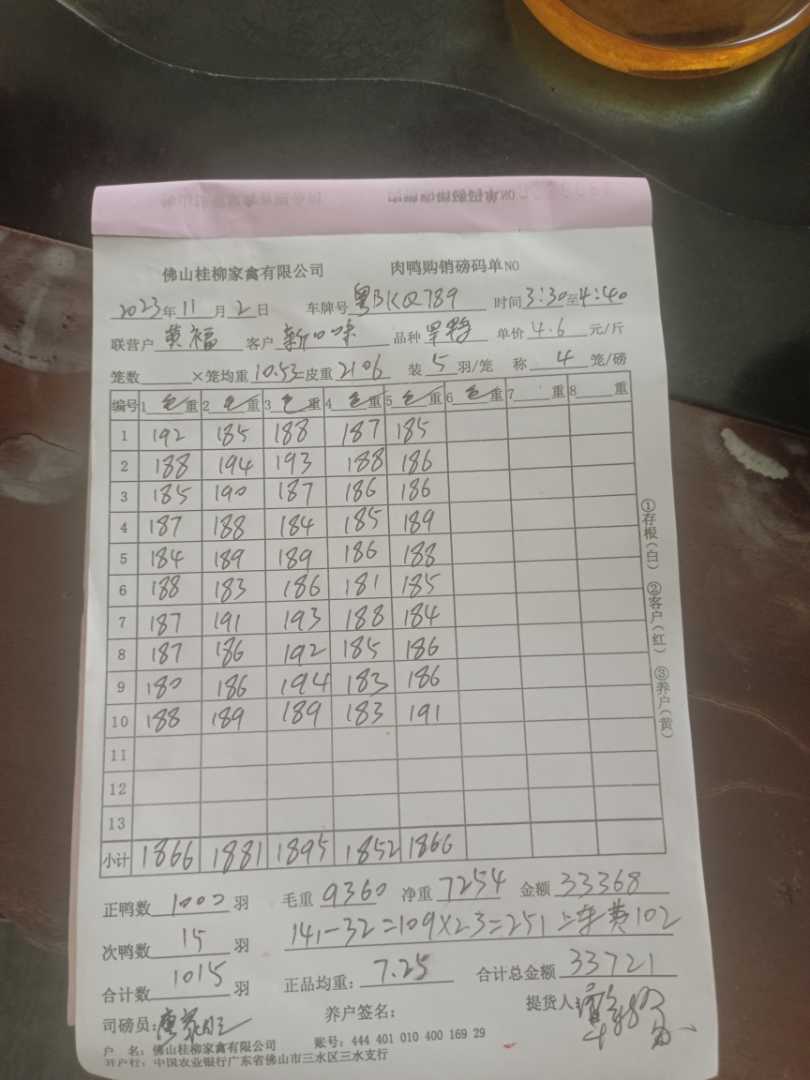 佛山桂柳家禽有限公司 肉鸭购销磅码单NO
2023年11月2日 车牌号粤BKQ789 时间3:30至4:40
联营户黄福 客户新口味 品种 单价4.6元/斤
笼数 ×笼均重10.53=皮重2106 装5羽/笼 称4笼/磅
编号 1毛重 2毛重 3毛重 4毛重 5毛重 6毛重 7 重 8 重
1 192 185 188 187 185
2 188 194 193 188 186
3 185 190 187 186 186
4 187 188 184 185 189
5 184 189 189 186 188
6 188 183 186 181 185
7 187 191 193 188 184
8 187 186 192 185 186
9 180 186 194 183 186
10 188 189 189 183 191
11
12
13
小计 1866 1881 1895 1852 1866
正鸭数1000羽 毛重9360 净重7254 金额33368
次鸭数15羽 141-32=109×2.3=251 上车费102
合计数1015羽 正品均重:7.25 合计总金额33721
司磅员: 养户签名: 提货人:
户 名:佛山桂柳家禽有限公司 账号:444 401 010 400 169 29
开户行:中国农业银行广东省佛山市三水区三水支行
①存根(白) ②客户(红) ③养户(黄)